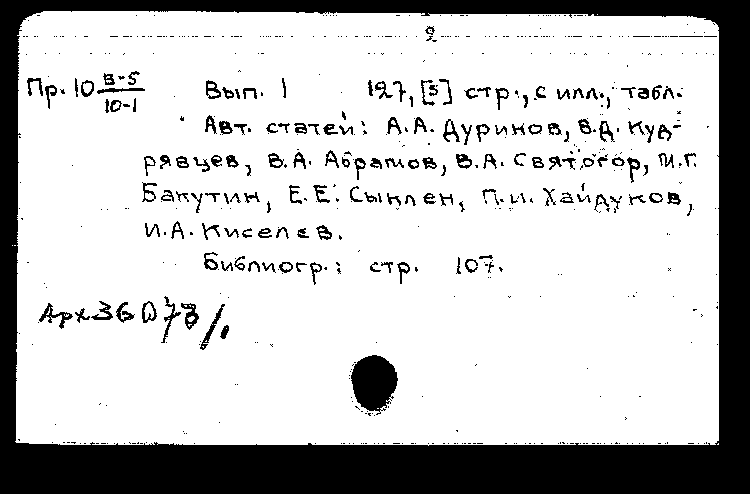 2
Пр. 10 В-5/10-1 Вып. 1 127, [3] стр., с илл., табл.
Авт. статей: А.А. Дуринов, В.Д. Куд-
рявцев, В.А. Абрамов, В.А. Святогор, М.Г.
Бакутин, Е.Е. Сыклен, П.И. Хайдуков,
И.А. Киселев.
Библиогр.: стр. 107.
Арх36